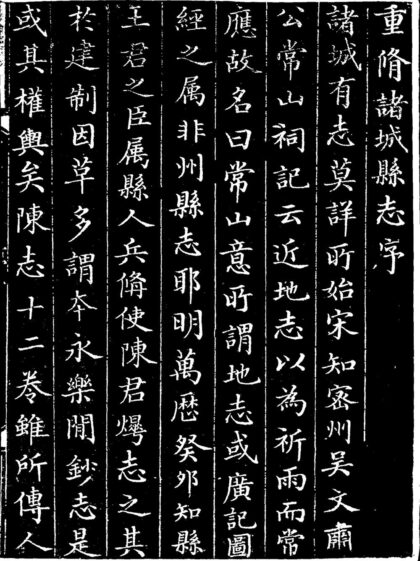 重脩諸城縣志序
諸城有志莫詳所始宋知密州吳文肅
公常山祠記云近地志以為祈雨而常
應故名曰常山意所謂地志或廣記圖
經之属非州縣志耶明萬歷癸夘知縣
王君之臣属縣人兵脩使陳君燁志之其
於建制因草多謂本永樂閒鈔志是
或其權輿矣陳志十二卷雖所傳人